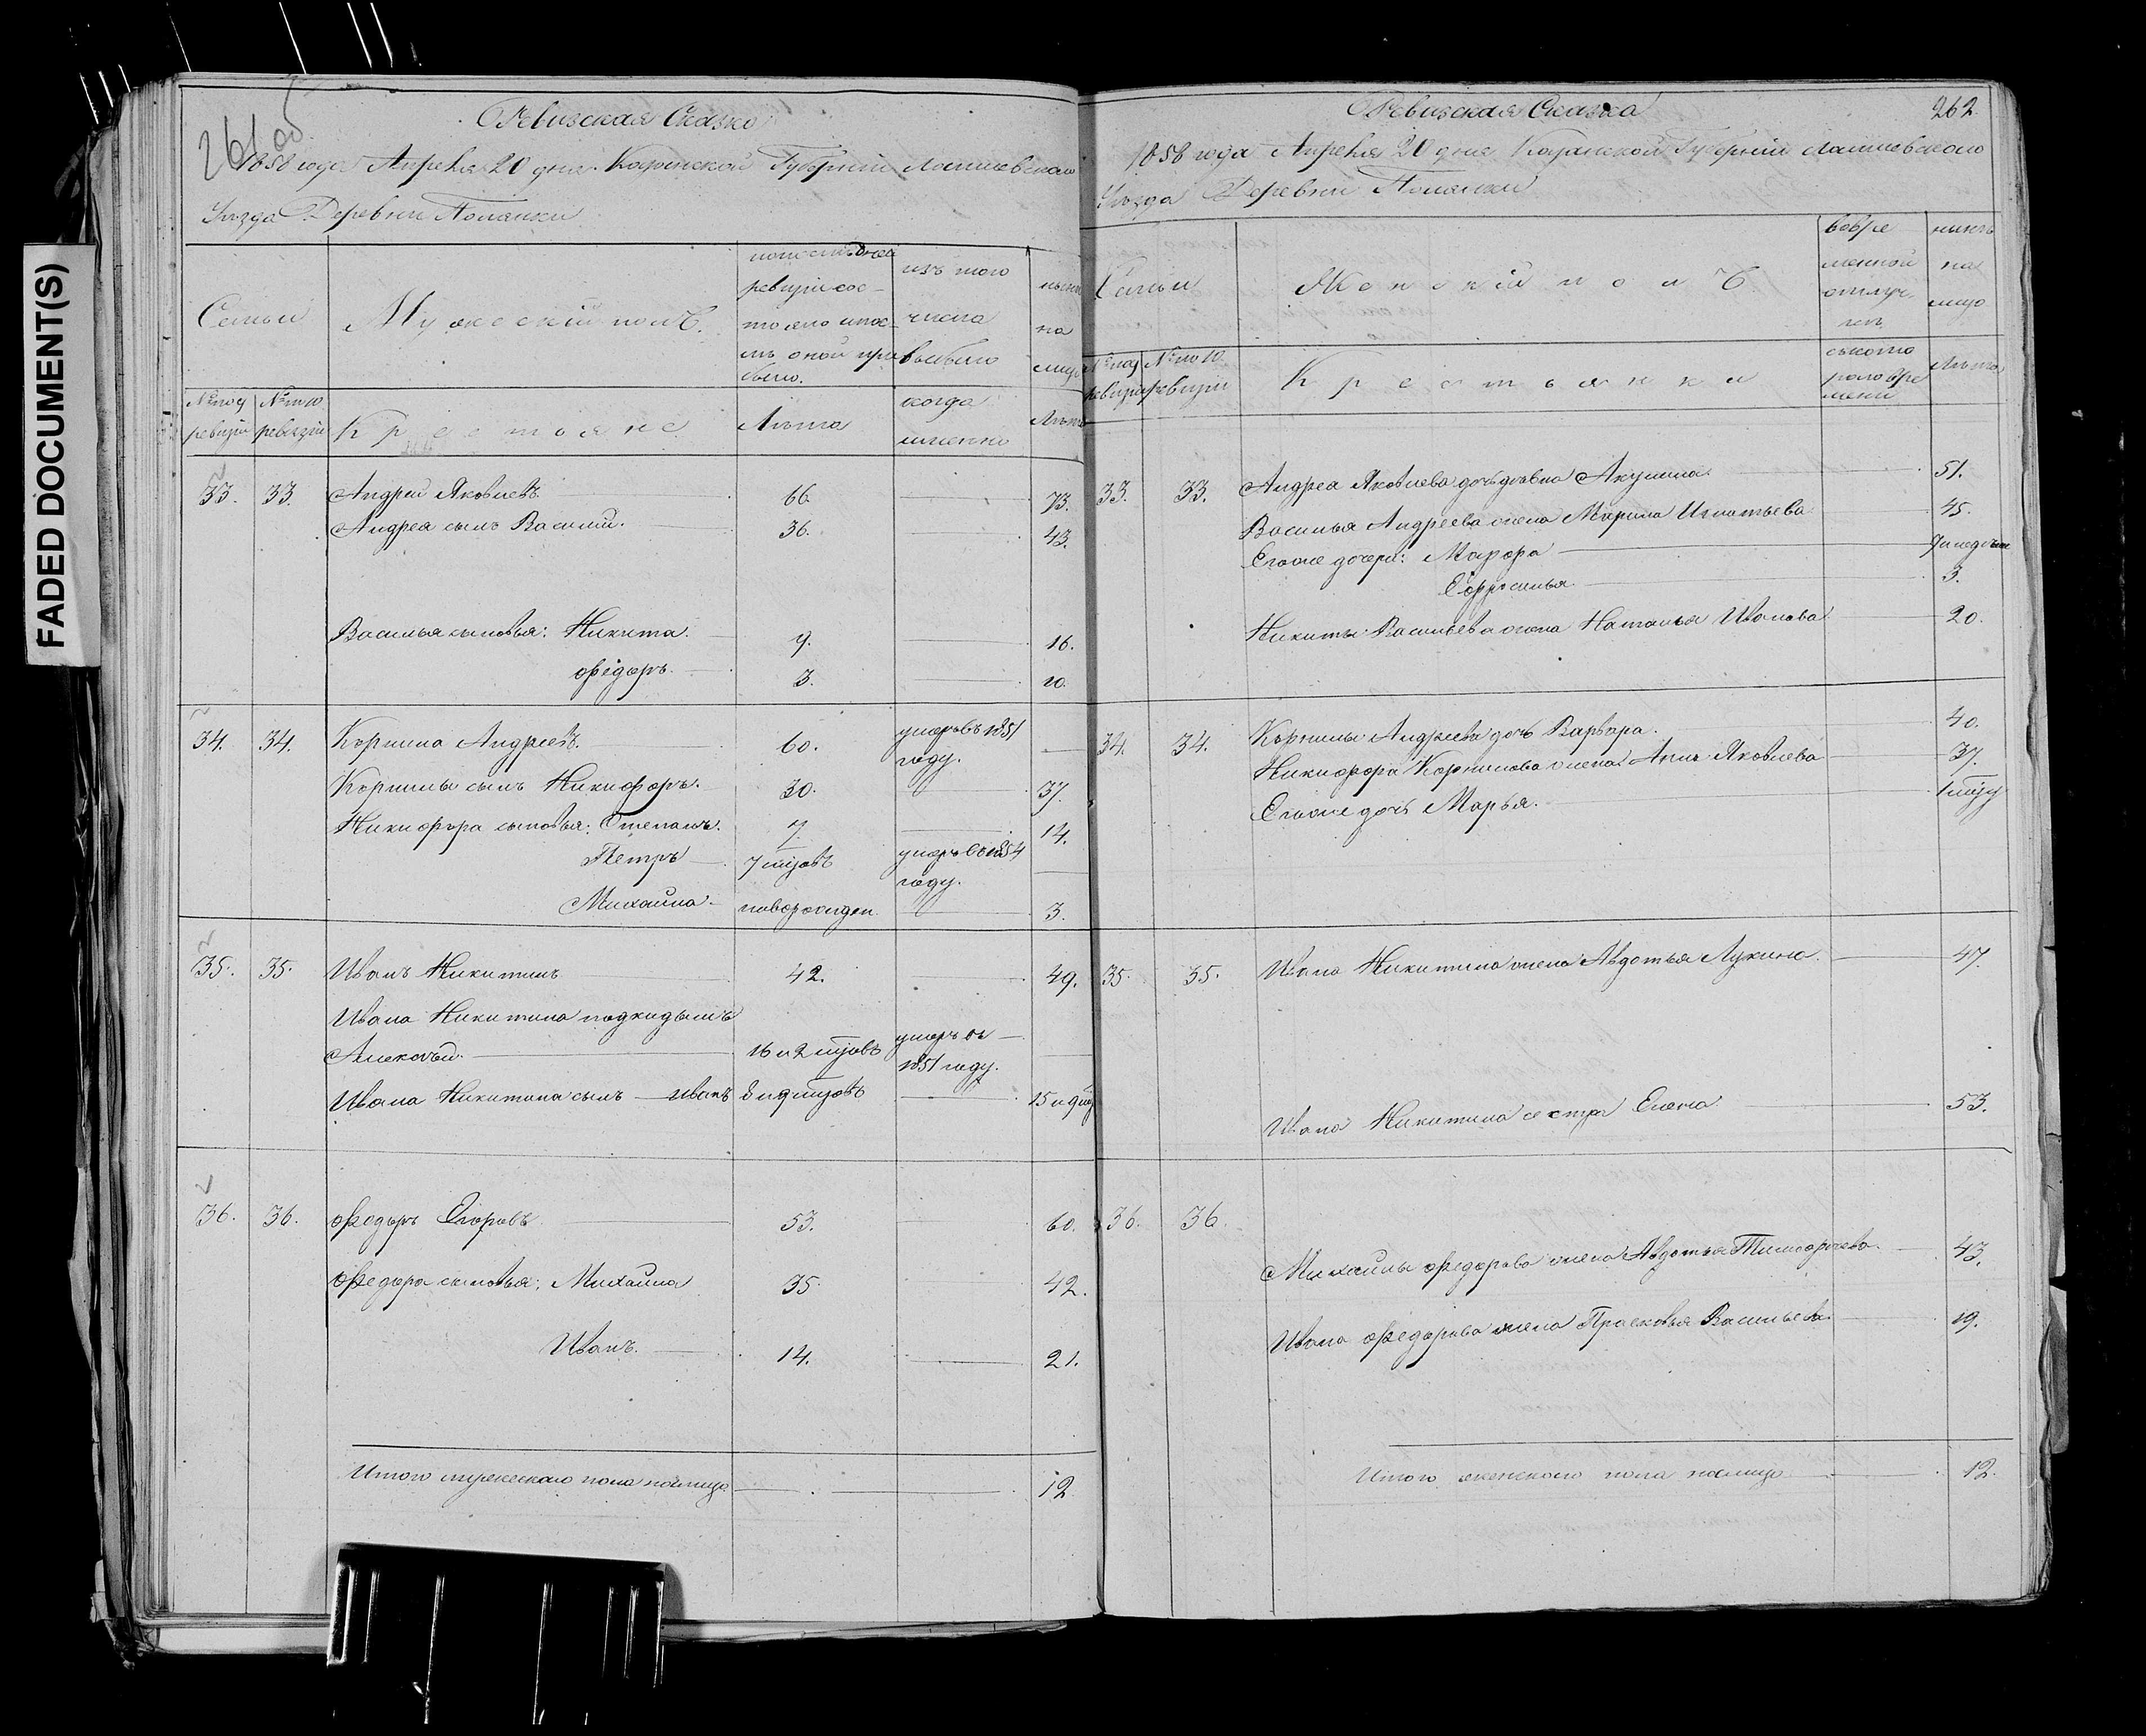 FADED DOCUMENT(S)
261 об
Ревизская Сказка
1858 года Апреля 20 дня Казанской Губерніи Лаишевскаго
Уѣзда Деревни Полянки
Семьи
Мужескій полъ.
по последней
ревизіи сос-
тояло и пос-
лѣ оной при
было.
изъ того
числа
выбыло
нынѣ
на
лицо
№ по 9
ревизіи
№ по 10
ревизіи
Крестьяне
Лѣта
когда
именно
Лѣта
33. 33. Андрей Яковлевъ 66. 73.
Андрея сынъ Василий. 36. 43.
Василья сыновья: Никита. 9. 16.
Фёдоръ. 3. 10.
34. 34. Корнила Андреевъ. 60. умеръ въ 1851 году.
Корнилы сынъ Никифоръ. 30. 37.
Никифора сыновья: Степанъ. 7 14.
Петръ 7 мцовъ умеръ въ 1854 году.
Михайла новорожден 3.
35. 35. Иванъ Никитинъ 42. 49.
Ивана Никитина подкидышъ
Алексѣй. 16 и 2 мцовъ умеръ въ 1851 году.
Ивана Никитина сынъ Иванъ 8 и 9 мцовъ 15 и 9 мц
36. 36. Федоръ Егоровъ 53. 60.
Федора сыновья: Михайла 35. 42.
Иванъ. 14. 21.
Итого мужескаго пола налицо 12
262.
Ревизская Сказка
1858 года Апреля 20 дня Казанской Губерніи Лаишевскаго
Уѣзда Деревни Полянки
Семьи
Женскій полъ
во вре
менной
отлуч-
кѣ
нынѣ
на
лицо
№ по 9
ревизіи
№ по 10
ревизіи
Крестьянки
съ кото
раго вре
мени
Лѣта
33. 33. Андрея Яковлева дочь Акулина 51.
Василья Андреева жена Марина Игнатьева 45.
Его же дочери: Мавра
Ефросинья. 3.
Никиты Васильева жена Наталья Иванова 20.
34. 34. Корнилы Андреева дочь Варвара. 40.
Никифора Корнилова жена Анна Яковлева 37.
Его же дочь Марья.
35. 35. Ивана Никитина жена Авдотья Лукина. 47.
Ивана Никитина сестра Елена 53.
36. 36.
Михайлы Федорова жена Авдотья Тимофеева. 43.
Ивана Федорова жена Прасковья Васильева. 19.
Итого женскаго пола налицо 12.